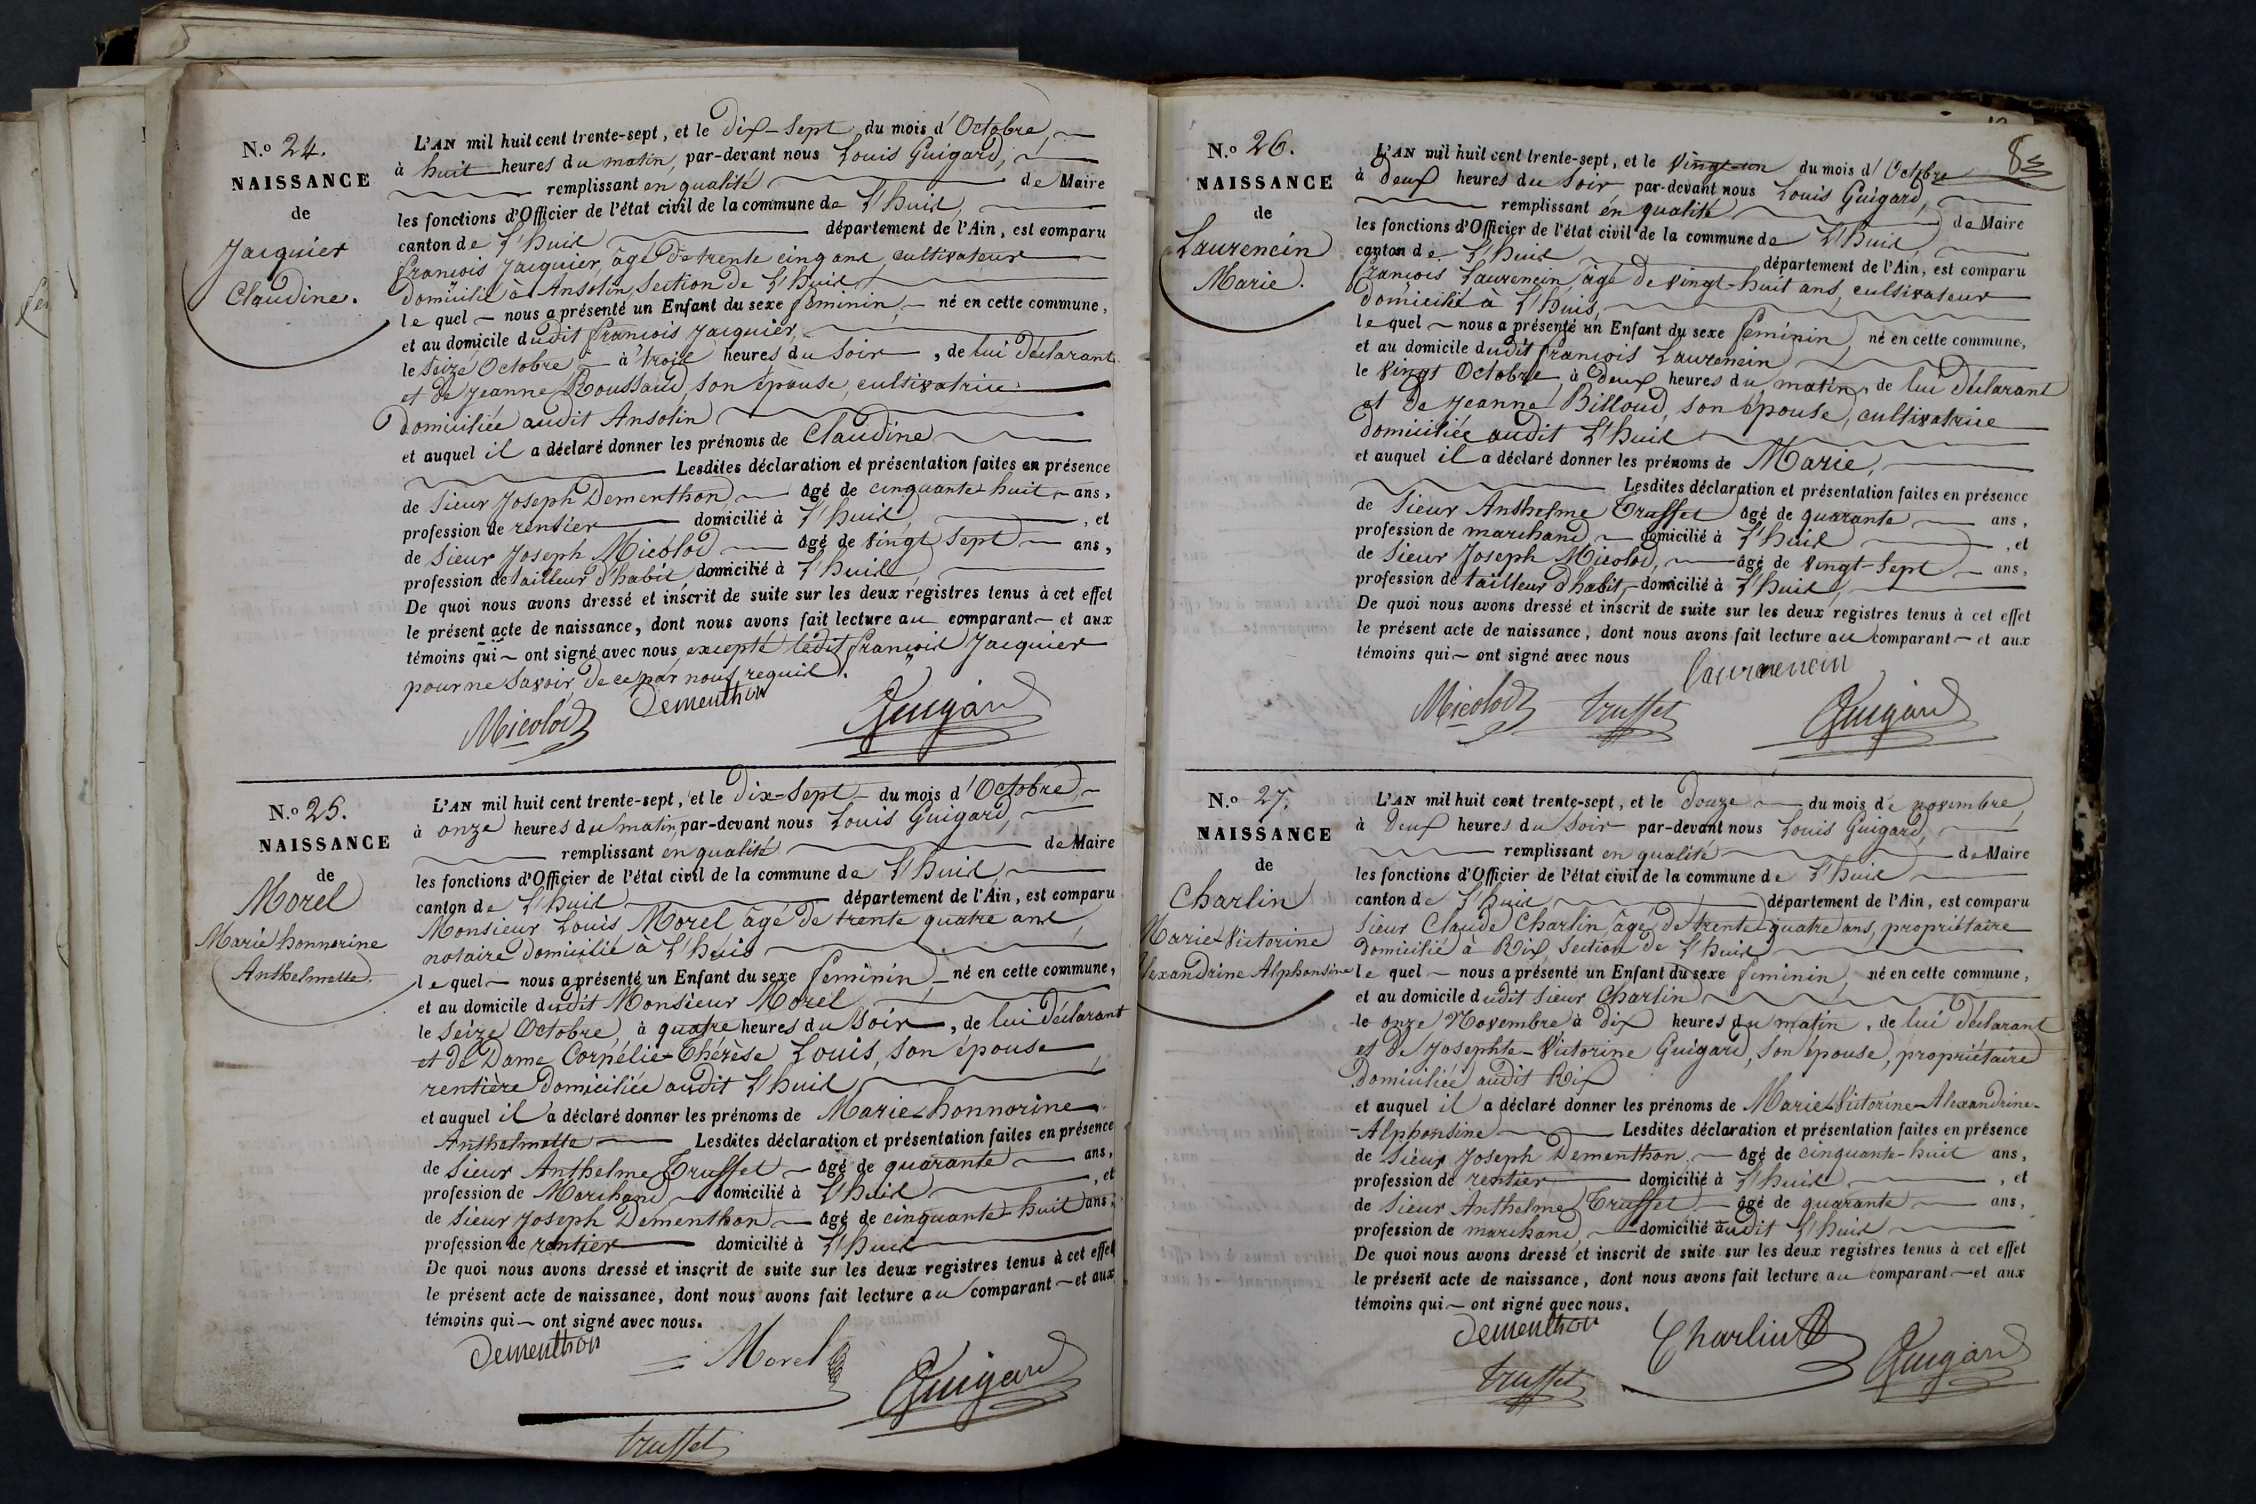 N.o 24.
NAISSANCE
de
Jacquier
Claudine.
L'AN mil huit cent trente-sept, et le dix-sept du mois d'Octobre,
à huit heures du matin, par-devant nous Louis Guigard,
remplissant en qualité de Maire
les fonctions d'Officier de l'état civil de la commune de L'huis,
canton de L'huis département de l'Ain, est comparu
françois Jacquier, âgé de trente cinq ans, cultivateur
domicilié à Ansolin section de L'huis
lequel nous a présenté un Enfant du sexe féminin, né en cette commune,
et au domicile dudit françois Jacquier,
le seize Octobre à trois heures du soir, de lui déclarant
et de Jeanne Roussaud, son épouse, cultivatrice
domiciliée audit Ansolin
et auquel il a déclaré donner les prénoms de Claudine
Lesdites déclaration et présentation faites en présence
de sieur Joseph Dementhon âgé de cinquante huit ans,
profession de rentier domicilié à L'huis, et
de sieur Joseph Micolod âgé de vingt sept ans,
profession de tailleur d'habit domicilié à L'huis
De quoi nous avons dressé et inscrit de suite sur les deux registres tenus à cet effet
le présent acte de naissance, dont nous avons fait lecture au comparant et aux
témoins qui ont signé avec nous, excepté ledit françois Jacquier
pour ne savoir, de ce par nous requis.
Micolod Dementhon Guigard
N.o 25.
NAISSANCE
de
Morel
Marie honnorine
Anthelmette.
L'AN mil huit cent trente-sept, et le dix-sept du mois d'Octobre,
à onze heures du matin, par-devant nous Louis Guigard,
remplissant en qualité de Maire
les fonctions d'Officier de l'état civil de la commune de L'huis,
canton de L'huis département de l'Ain, est comparu
Monsieur Louis Morel, âgé de trente quatre ans,
notaire domicilié à L'huis
lequel nous a présenté un Enfant du sexe féminin, né en cette commune,
et au domicile dudit Monsieur Morel
le seize Octobre, à quatre heures du soir, de lui déclarant
et de Dame Cornélie-Thérèse Louis, son épouse
rentière domiciliée audit L'huis
et auquel il a déclaré donner les prénoms de Marie-honnorine
Anthelmette Lesdites déclaration et présentation faites en présence
de sieur Anthelme Truffet âgé de quarante ans,
profession de Marchand domicilié à L'huis, et
de sieur Joseph Dementhon âgé de cinquante-huit ans,
profession de rentier domicilié à L'huis
De quoi nous avons dressé et inscrit de suite sur les deux registres tenus à cet effet
le présent acte de naissance, dont nous avons fait lecture au comparant et aux
témoins qui ont signé avec nous.
Dementhon Morel Guigard
truffet
8
N.o 26.
NAISSANCE
de
Laurencin
Marie.
L'AN mil huit cent trente-sept, et le vingt-un du mois d'Octobre
à deux heures du soir par-devant nous Louis Guigard,
remplissant en qualité de Maire
les fonctions d'Officier de l'état civil de la commune de L'huis
canton de L'huis département de l'Ain, est comparu
françois Laurencin, âgé de vingt-huit ans, cultivateur
domicilié à L'huis,
lequel nous a présenté un Enfant du sexe féminin, né en cette commune,
et au domicile dudit françois Laurencin
le vingt Octobre, à deux heures du matin, de lui déclarant
et de Jeanne Billoud, son épouse, cultivatrice
domiciliée audit L'huis
et auquel il a déclaré donner les prénoms de Marie,
Lesdites déclaration et présentation faites en présence
de sieur Anthelme Truffet âgé de quarante ans,
profession de marchand domicilié à L'huis, et
de sieur Joseph Micolod, âgé de vingt-sept ans,
profession de tailleur d'habit, domicilié à L'huis,
De quoi nous avons dressé et inscrit de suite sur les deux registres tenus à cet effet
le présent acte de naissance, dont nous avons fait lecture au comparant et aux
témoins qui ont signé avec nous
Laurencin
Micolod truffet Guigard
N.o 27.
NAISSANCE
de
Charlin
Marie-Victorine
Alexandrine Alphonsine
L'AN mil huit cent trente-sept, et le douze du mois de novembre,
à deux heures du soir par-devant nous Louis Guigard,
remplissant en qualité de Maire
les fonctions d'Officier de l'état civil de la commune de L'huis
canton de L'huis département de l'Ain, est comparu
sieur Claude Charlin, âgé de trente-quatre ans, propriétaire
domicilié à Rix, section de L'huis
lequel nous a présenté un Enfant du sexe féminin, né en cette commune,
et au domicile dudit sieur Charlin
le onze Novembre à dix heures du matin, de lui déclarant
et de Josephte-Victorine Guigard, son épouse, propriétaire
domiciliée audit Rix
et auquel il a déclaré donner les prénoms de Marie-Victorine-Alexandrine-
-Alphonsine Lesdites déclaration et présentation faites en présence
de sieur Joseph Dementhon âgé de cinquante-huit ans,
profession de rentier domicilié à L'huis, et
de sieur Anthelme Truffet âgé de quarante ans,
profession de marchand, domicilié audit L'huis
De quoi nous avons dressé et inscrit de suite sur les deux registres tenus à cet effet
le présent acte de naissance, dont nous avons fait lecture au comparant et aux
témoins qui ont signé avec nous.
Dementhon Charlin Guigard
truffet